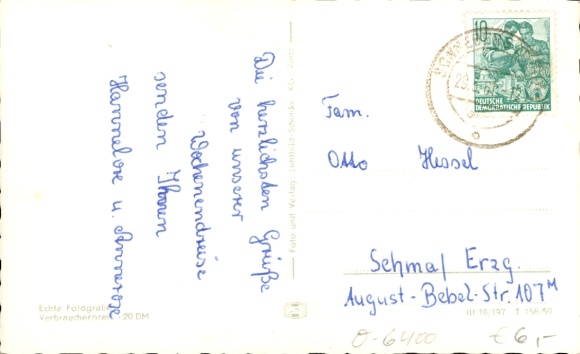 Die herzlichsten Grüße
von unserer
Wochenendreise
senden Ihnen
Hannelore u. Annerose
Echte Fotografie
Verbraucherpreis -.20 DM
Foto und Verlag
10
DEUTSCHE
DEMOKRATISCHE REPUBLIK
Fam.
Otto Hessel
Sehma/Erzg.
August-Bebel-Str. 107ᴹ
III 18/197 T 158/59
0-6400 € 6,-